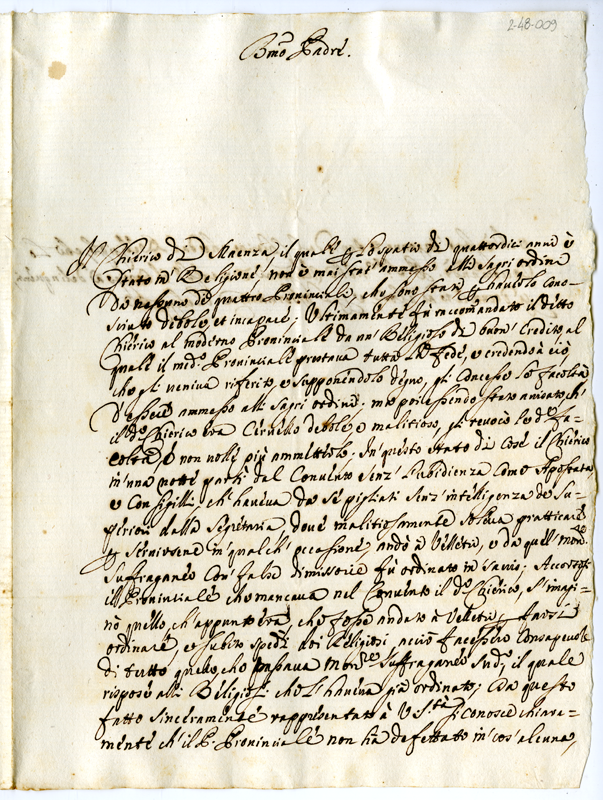 2-48-009
Bmo Padre.
Chierico di Maenza, il quale p lo spatio di quattordici anni è
stato in Religione non è mai stato ammesso alli Sagri ordini
da nessuno di quattro Provinciali, che sono stati p haverlo cono=
sciuto debole, et incapace; Ultimamente fù raccomandato il detto
Chierico al moderno Provinciale da un Religioso di buon' credito, al
quale il medo Provinciale prestava tutta la fede, e credendo à ciò,
che gli veniva riferito, e supponendolo degno, gli concesse la facoltà
d'essere ammesso alli Sagri ordini: mà poi essendo stato avisato ch'
il do Chierico era cervello debole, e malitioso, gli revocò le de fa=
coltà, e non volle più ammetterlo. In questo stato di cose il Chierico
in una notte partì dal Convento senz' ubidienza come Apostata,
e con sigilli, ch' haveva da sè pigliati senz' intelligenza de Su=
periori dalla Segretaria dove malitiosamente soleva pratticare
p servirsene in qualch' occasione, andò à Velletri, e da quel monre
Suffraganeo con false dimissorie fù ordinato in Sacris; Accortosi
il Provinciale che mancava nel Convento il do Chierico, s'imagi=
nò quello, ch' appunto era, che fosse andato à Velletri p farsi
ordinare, e subito spedì doi Religiosi acciò facessero consapevole
di tutto quello, che passava Monre Suffraganeo sudo, il quale
rispose alli Religiosi che l' haveva già ordinato; Da questo
fatto sinceramente rappresentato à V. Stà si conosce chiara=
mente ch' il P. Provinciale non hà defettato in cos' alcuna,